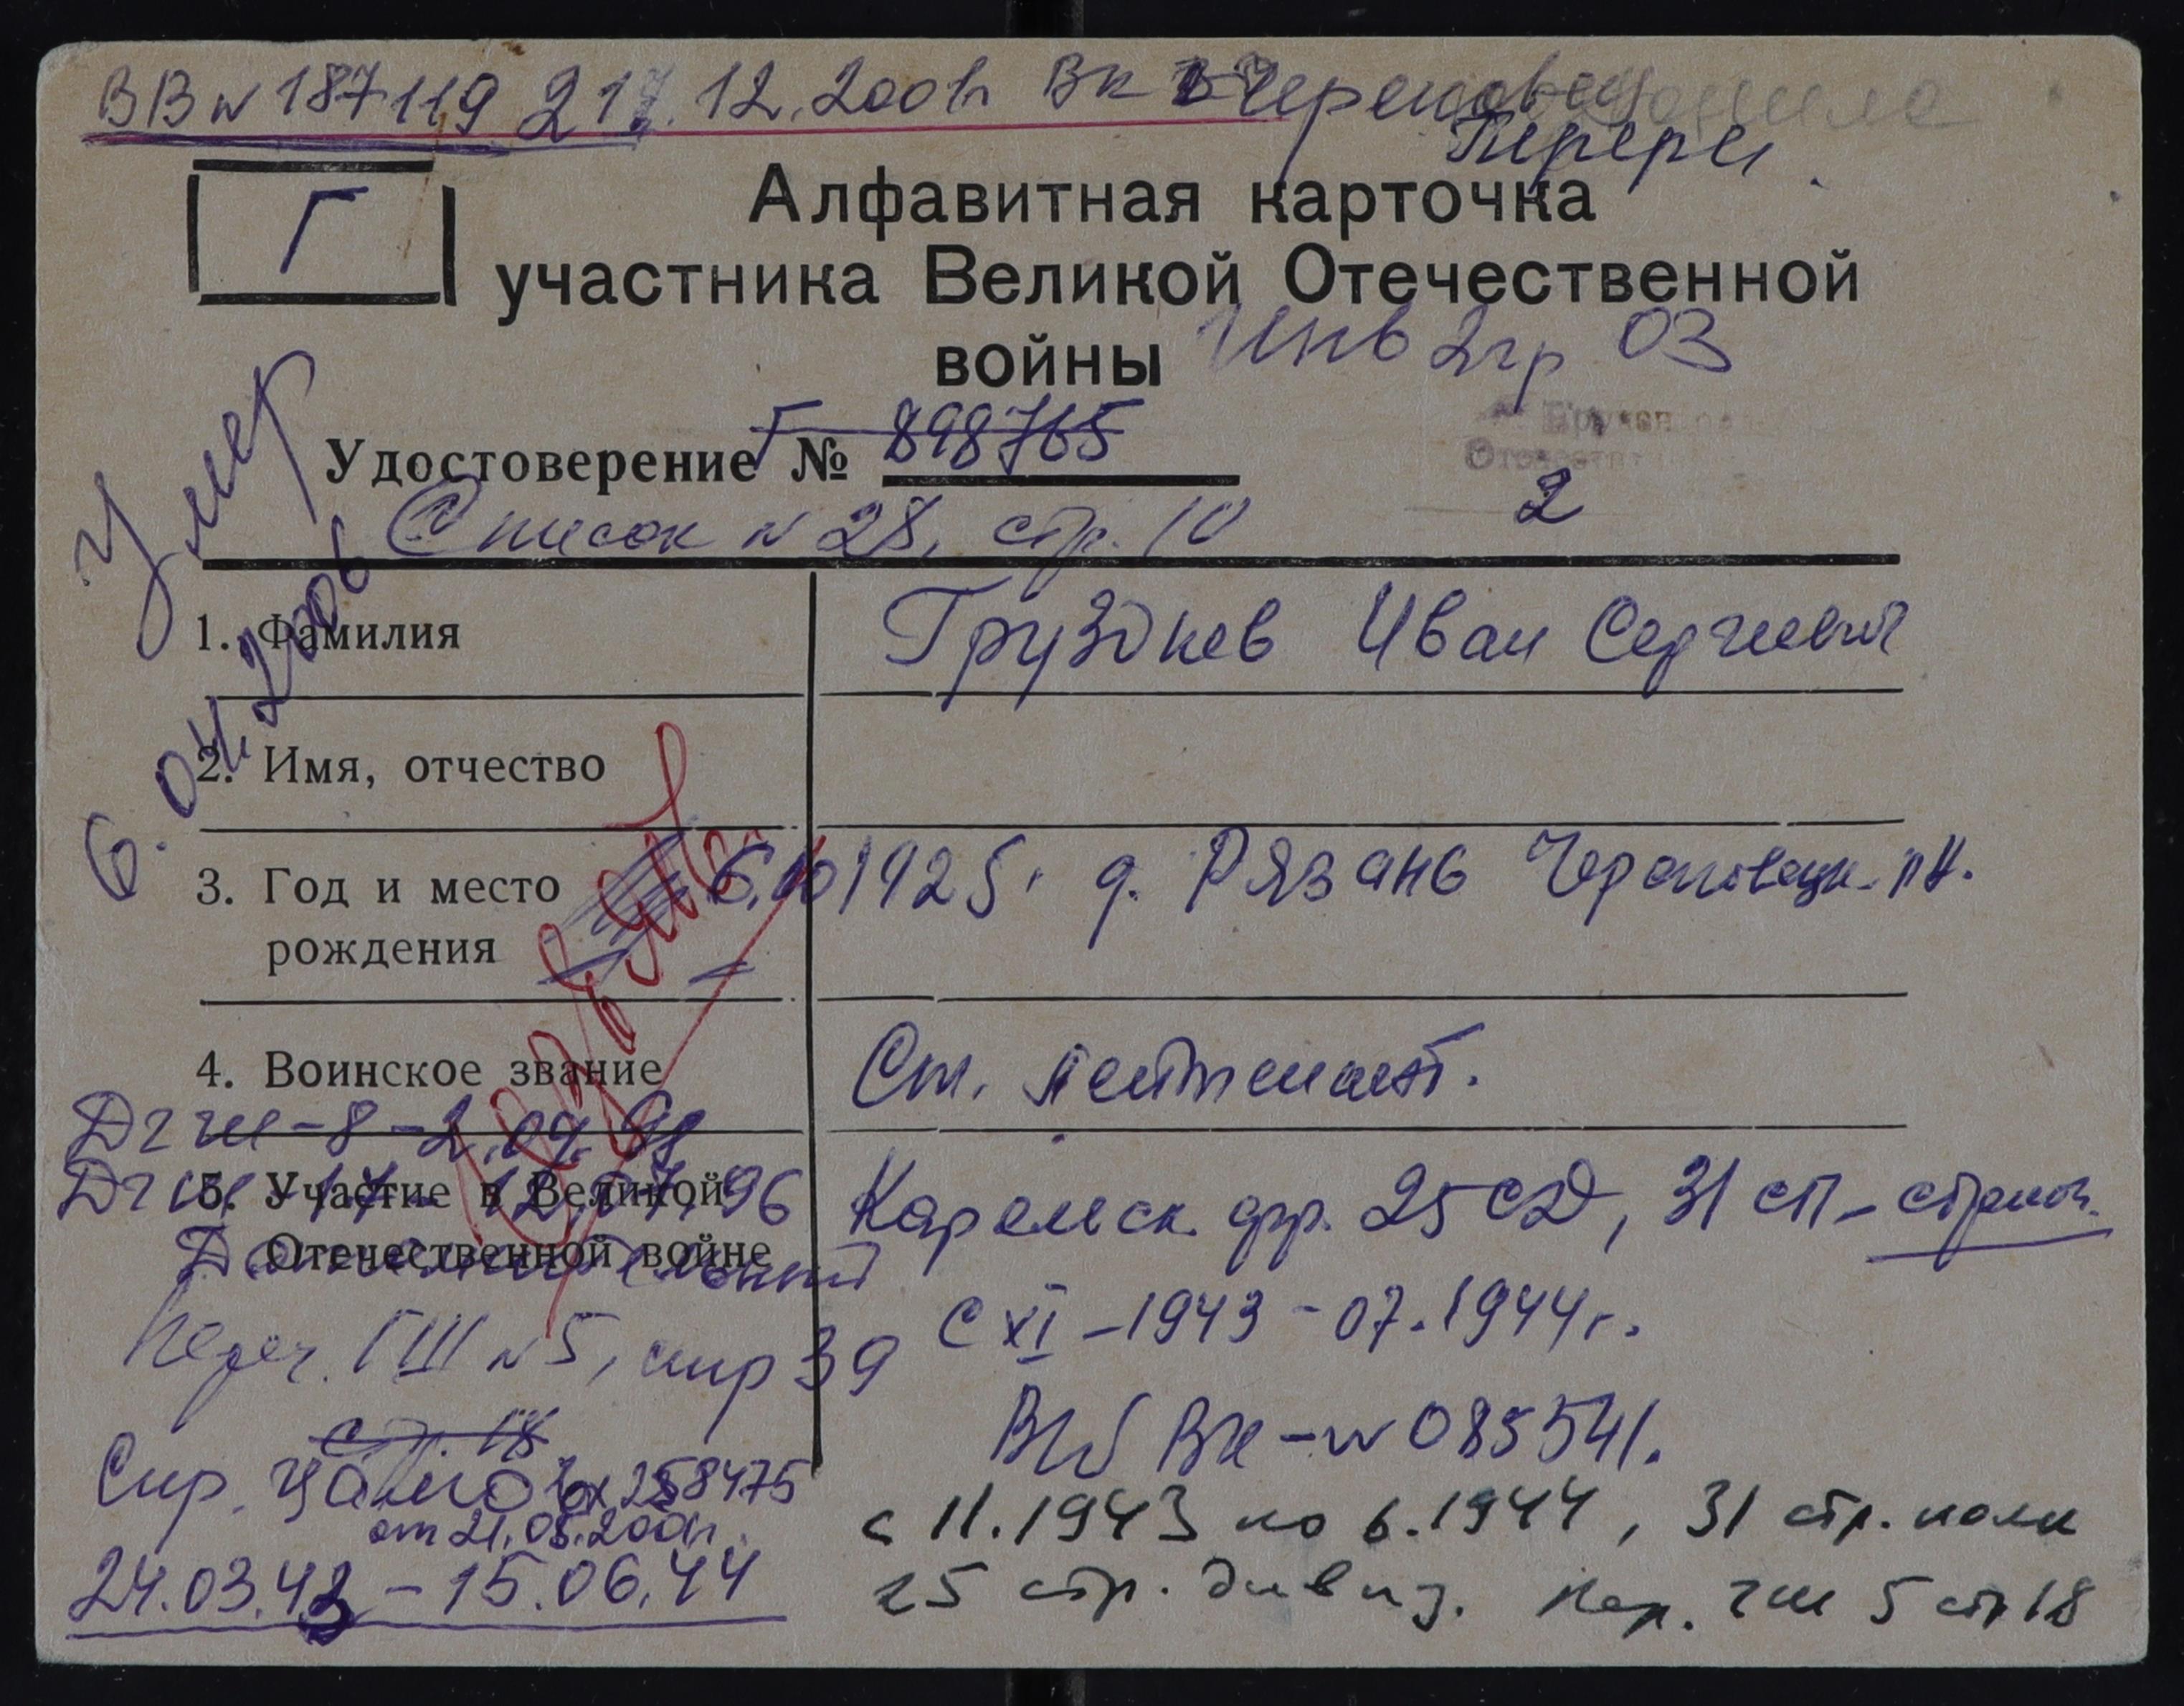 ВВ № 187119 21.12.2001г ВК Череповец
Перерег.
Г
Алфавитная карточка
участника Великой Отечественной
войны
Инв 2гр 03
Удостоверение Г № 898765
2
Список № 28, стр. 10
Умер
6.04.2006
1. Фамилия
Груздков Иван Сергеевич
2. Имя, отчество
3. Год и место
рождения
6.10 1925г д. Рязань Череповецк. рн.
4. Воинское звание
Ст. лейтенант.
ДГШ-8-2.04.98
ДГШ 17- 12.07.96
5. Участие в Великой
Отечественной войне
Дополнительный
Карельск. фр. 25 СД, 31 СП - стрелок.
С XI - 1943 - 07.1944г.
Переч. ГШ № 5, стр 39
ВК - № 085541.
стр. 18
Спр. ЦАМО Вх 258475
от 21.05.2001г.
24.03.43 - 15.06.44
с 11.1943 по 6.1944, 31 стр. полк
25 стр. дивиз. Пер. ГШ 5 стр 18